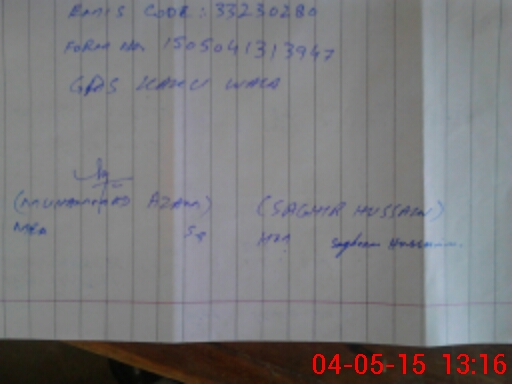 EMIS CODE: 33230280
FORM No. 1505041313947
GPS KAKU WALA
(MUHAMMAD AZAM) (SAGHIR HUSSAIN)
MEA HM Saghir Hussain
04-05-15 13:16